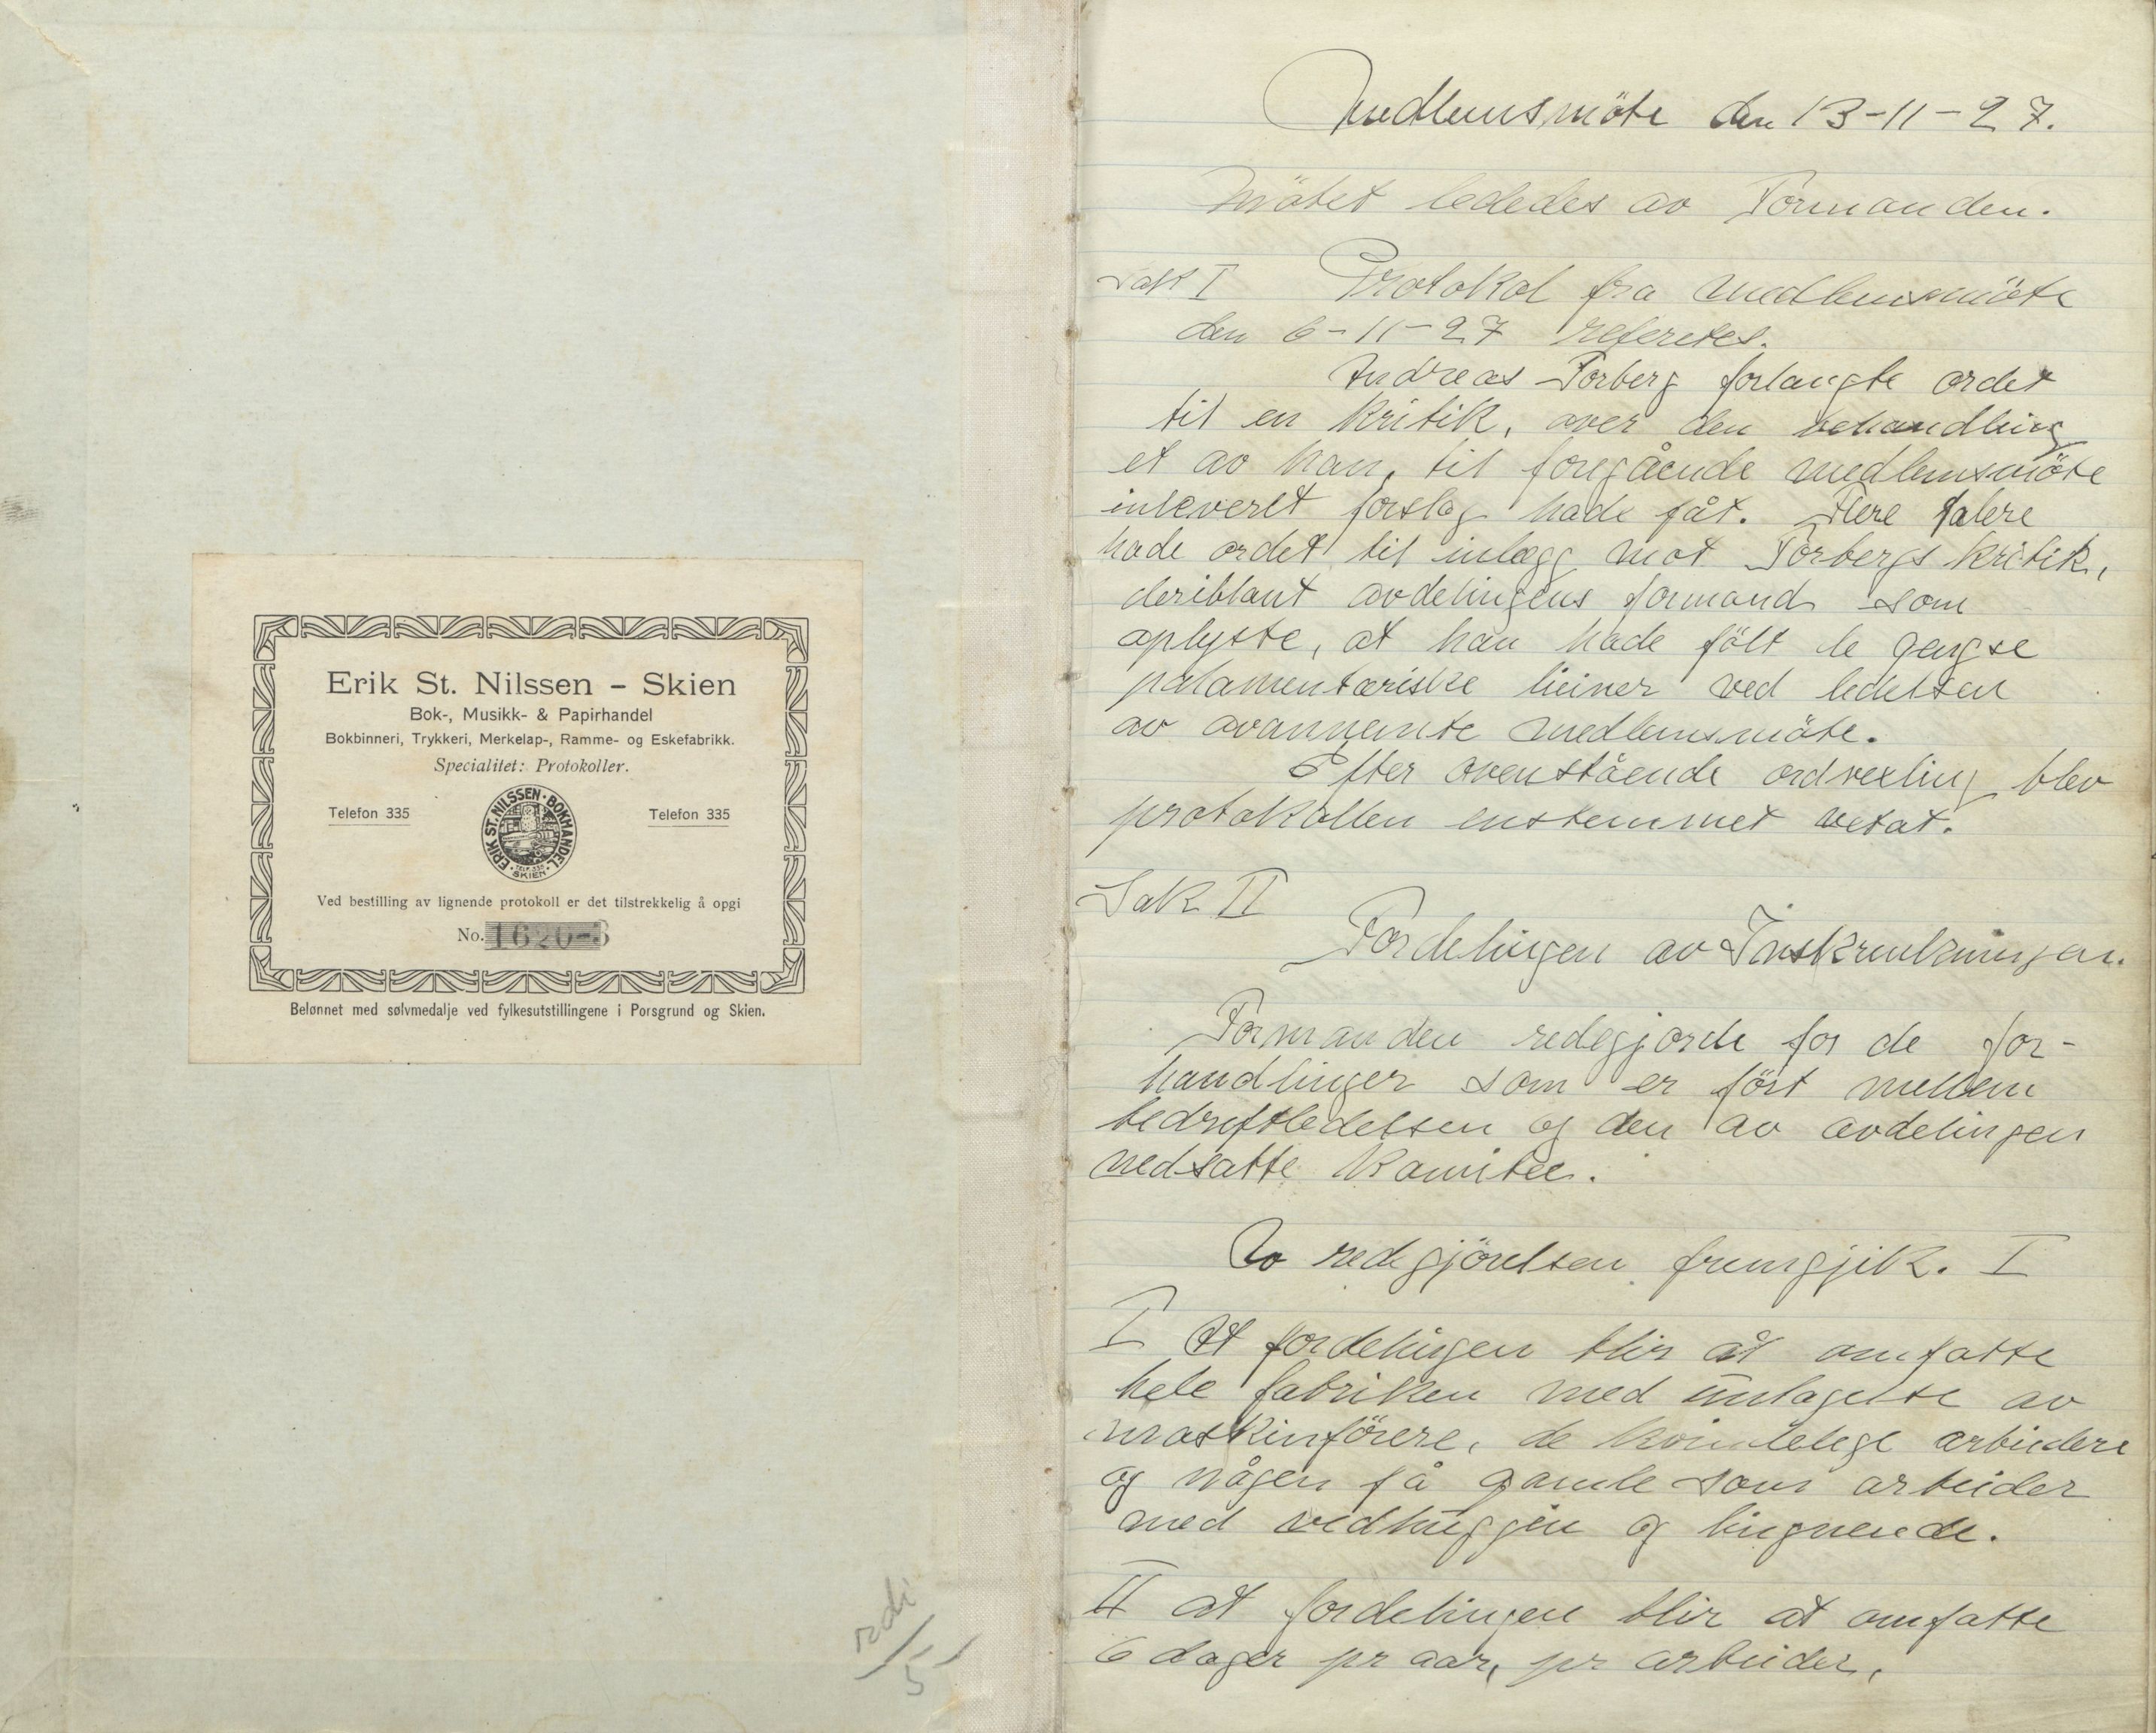 Erik St. Nilssen – Skien
Bok-, Musikk- & Papirhandel
Bokbinneri, Trykkeri, Merkelap-, Ramme- og Eskefabrikk.
Specialitet: Protokoller.
Telefon 335
Telefon 335
ERIK ST. NILSSEN · BOKHANDEL ·
SKIEN
Ved bestilling av lignende protokoll er det tilstrekkelig å opgi
No. 1620-3
Belønnet med sølvmedalje ved fylkesutstillingene i Porsgrund og Skien.
5
Medlemsmöte den 13-11-27.
Mötet lededes av Formanden.
Sak I Protokol fra medlemsmöte
den 6-11-27 referetes.
Andreas Torberg forlangte ordet
til en kritik, over den behandling
et av han, til foregående medlemsmöte
inleveret forslag hade fåt. Flere talere
hade ordet til inlægg mot Torbergs kritik,
deriblant avdelingens formand som
oplyste, at han hade fölt de gengse
palamentariske linier ved ledelsen
av ovannemte medlemsmöte.
Efter ovenstående ordvexling blev
protokollen enstemmet vetat.
Sak II
Fordelingen av Inskrenkningen.
Formanden redegjorde for de for-
handlinger som er fört mellem
bedreftledelsen og den av avdelingen
nedsatte komitee.
Av redegjörelsen fremgjik. I
I At fordelingen blir at omfatte
hele fabriken med untagelse av
maskinförere, de kvindelege arbeidere
og någen få gamle som arbeider
med vedhuggin og lingnende.
II at fordelingen blir at omfatte
6 dager pr aar, pr arbeider.